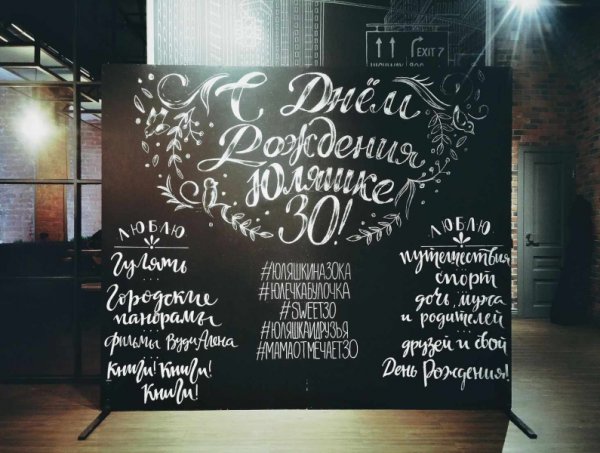 EXIT 7
С Днём
Рождения
Юляшке
30!
ЛЮБЛЮ
Гулять
Городские
панорамы
фильмы Вуди Алена
Книги! Книги!
Книги!
#ЮЛЯШКИНА30КА
#ЮЛЕЧКАБУЛОЧКА
#SWEET30
#ЮЛЯШКАИДРУЗЬЯ
#МАМАОТМЕЧАЕТ30
ЛЮБЛЮ
путешествия
спорт
дочь, мужа
и родителей
друзей и свой
День Рождения!